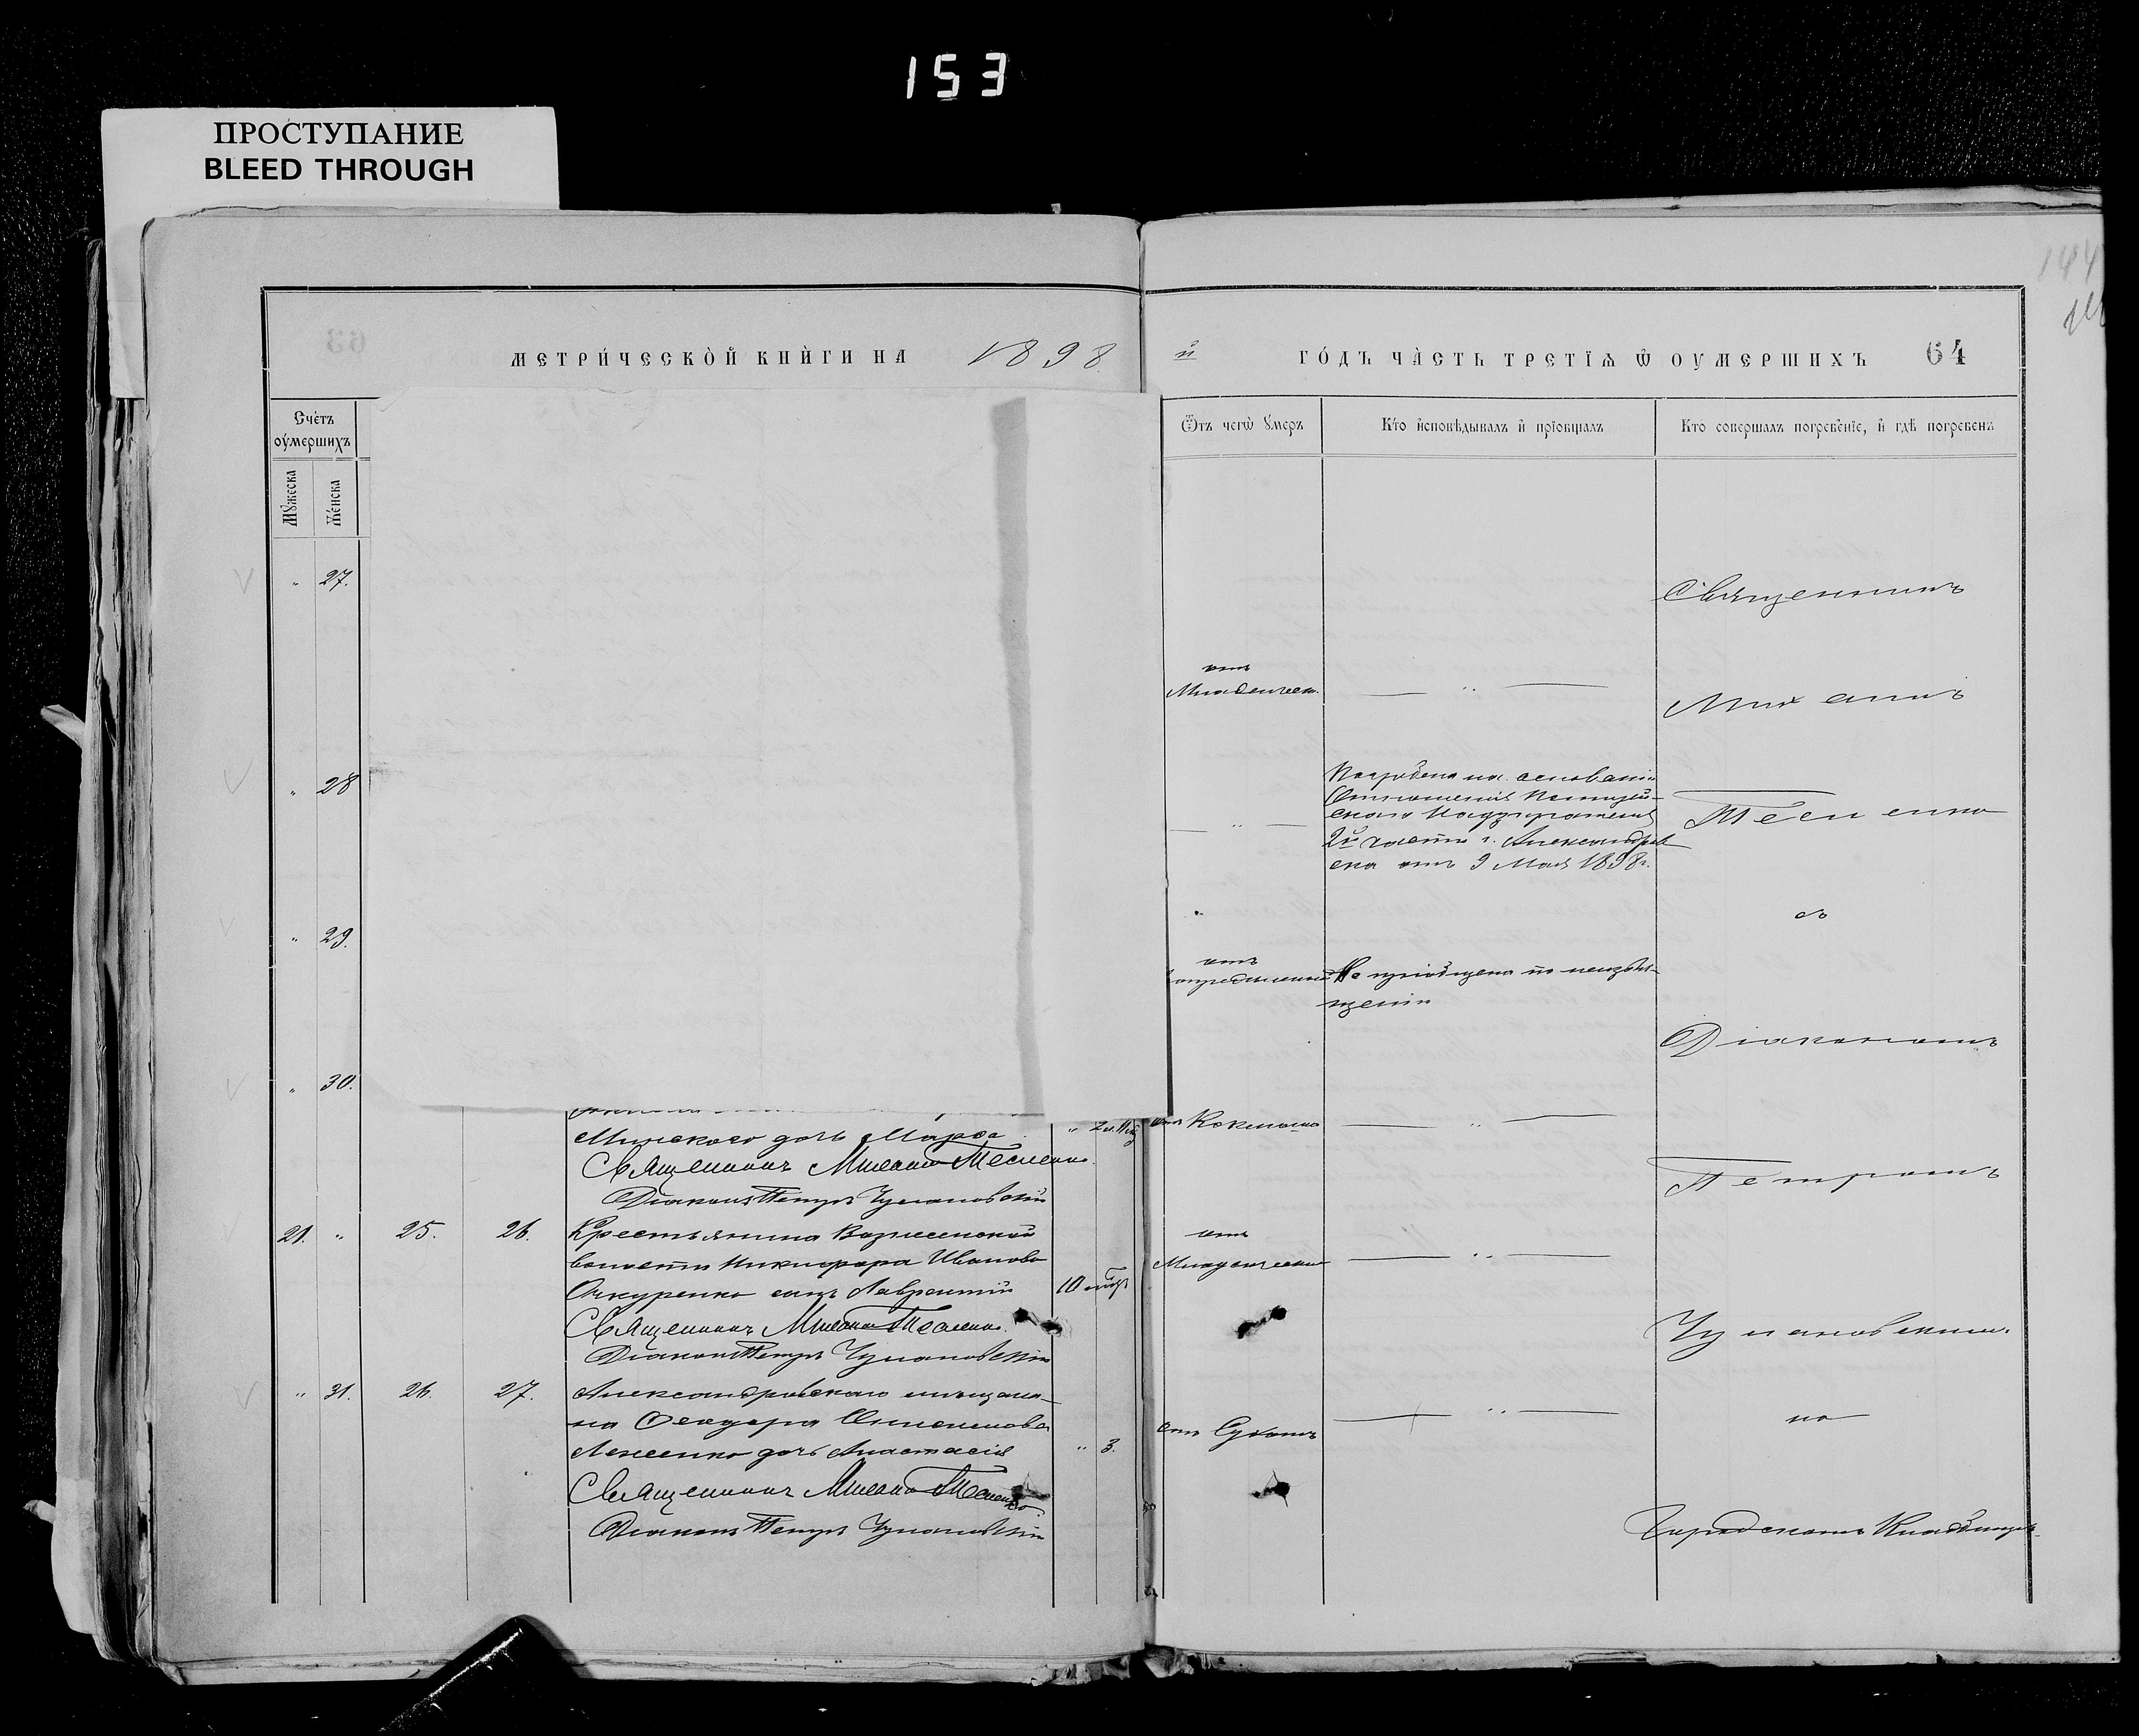 153
ПРОСТУПАНИЕ
BLEED THROUGH
144
МЕТРИ́ЧЕСКОЙ КНИ́ГИ НА 1898
й ГО́ДЪ ЧА́СТЬ ТРЕТІѦ Ѿ ОУМЕРШИХЪ 64
Сче́тъ
оу́мершихъ
Мꙋ́жеска
Же́нска
Ѿъ чегѡ̀ ᲂу҆́меръ
Кто̀ и҆сповѣ́дывалъ и҆ прїѡбща́лъ
Кто̀ соверша́лъ погребе́нїе, и҆ гдѣ̀ погребе́нъ
" 27.
Священникъ
отъ
Младенческ.
Михаилъ
" 28
Погребена на основаніи
Отношенія Полицей-
скаго Надзирателя
2й части г. Александров
ска отъ 9 Мая 1898г.
Тесленко
" 29.
съ
отъ
Не пріобщена по неизвѣ-
щенію
Діакономъ
" 30.
дочь Марѳа
отъ Коклюша
Священникъ Михаилъ Тесленко
Діаконъ Петръ Чулановскій
Петромъ
21. " 25. 26.
Крестьянина Вознесенской
волости Никифора Иванова
сынъ Лаврентій
отъ
Младенческой
Священникъ Михаилъ Тесленко
Діаконъ Петръ Чулановскій
Чулановскимъ.
" 31. 26. 27.
Александровскаго мѣщани-
на Ѳеодора
дочь Анастасія
" 3.
на
Священникъ Михаилъ Тесленко
Діаконъ Петръ Чулановскій
Городскомъ Кладбищѣ